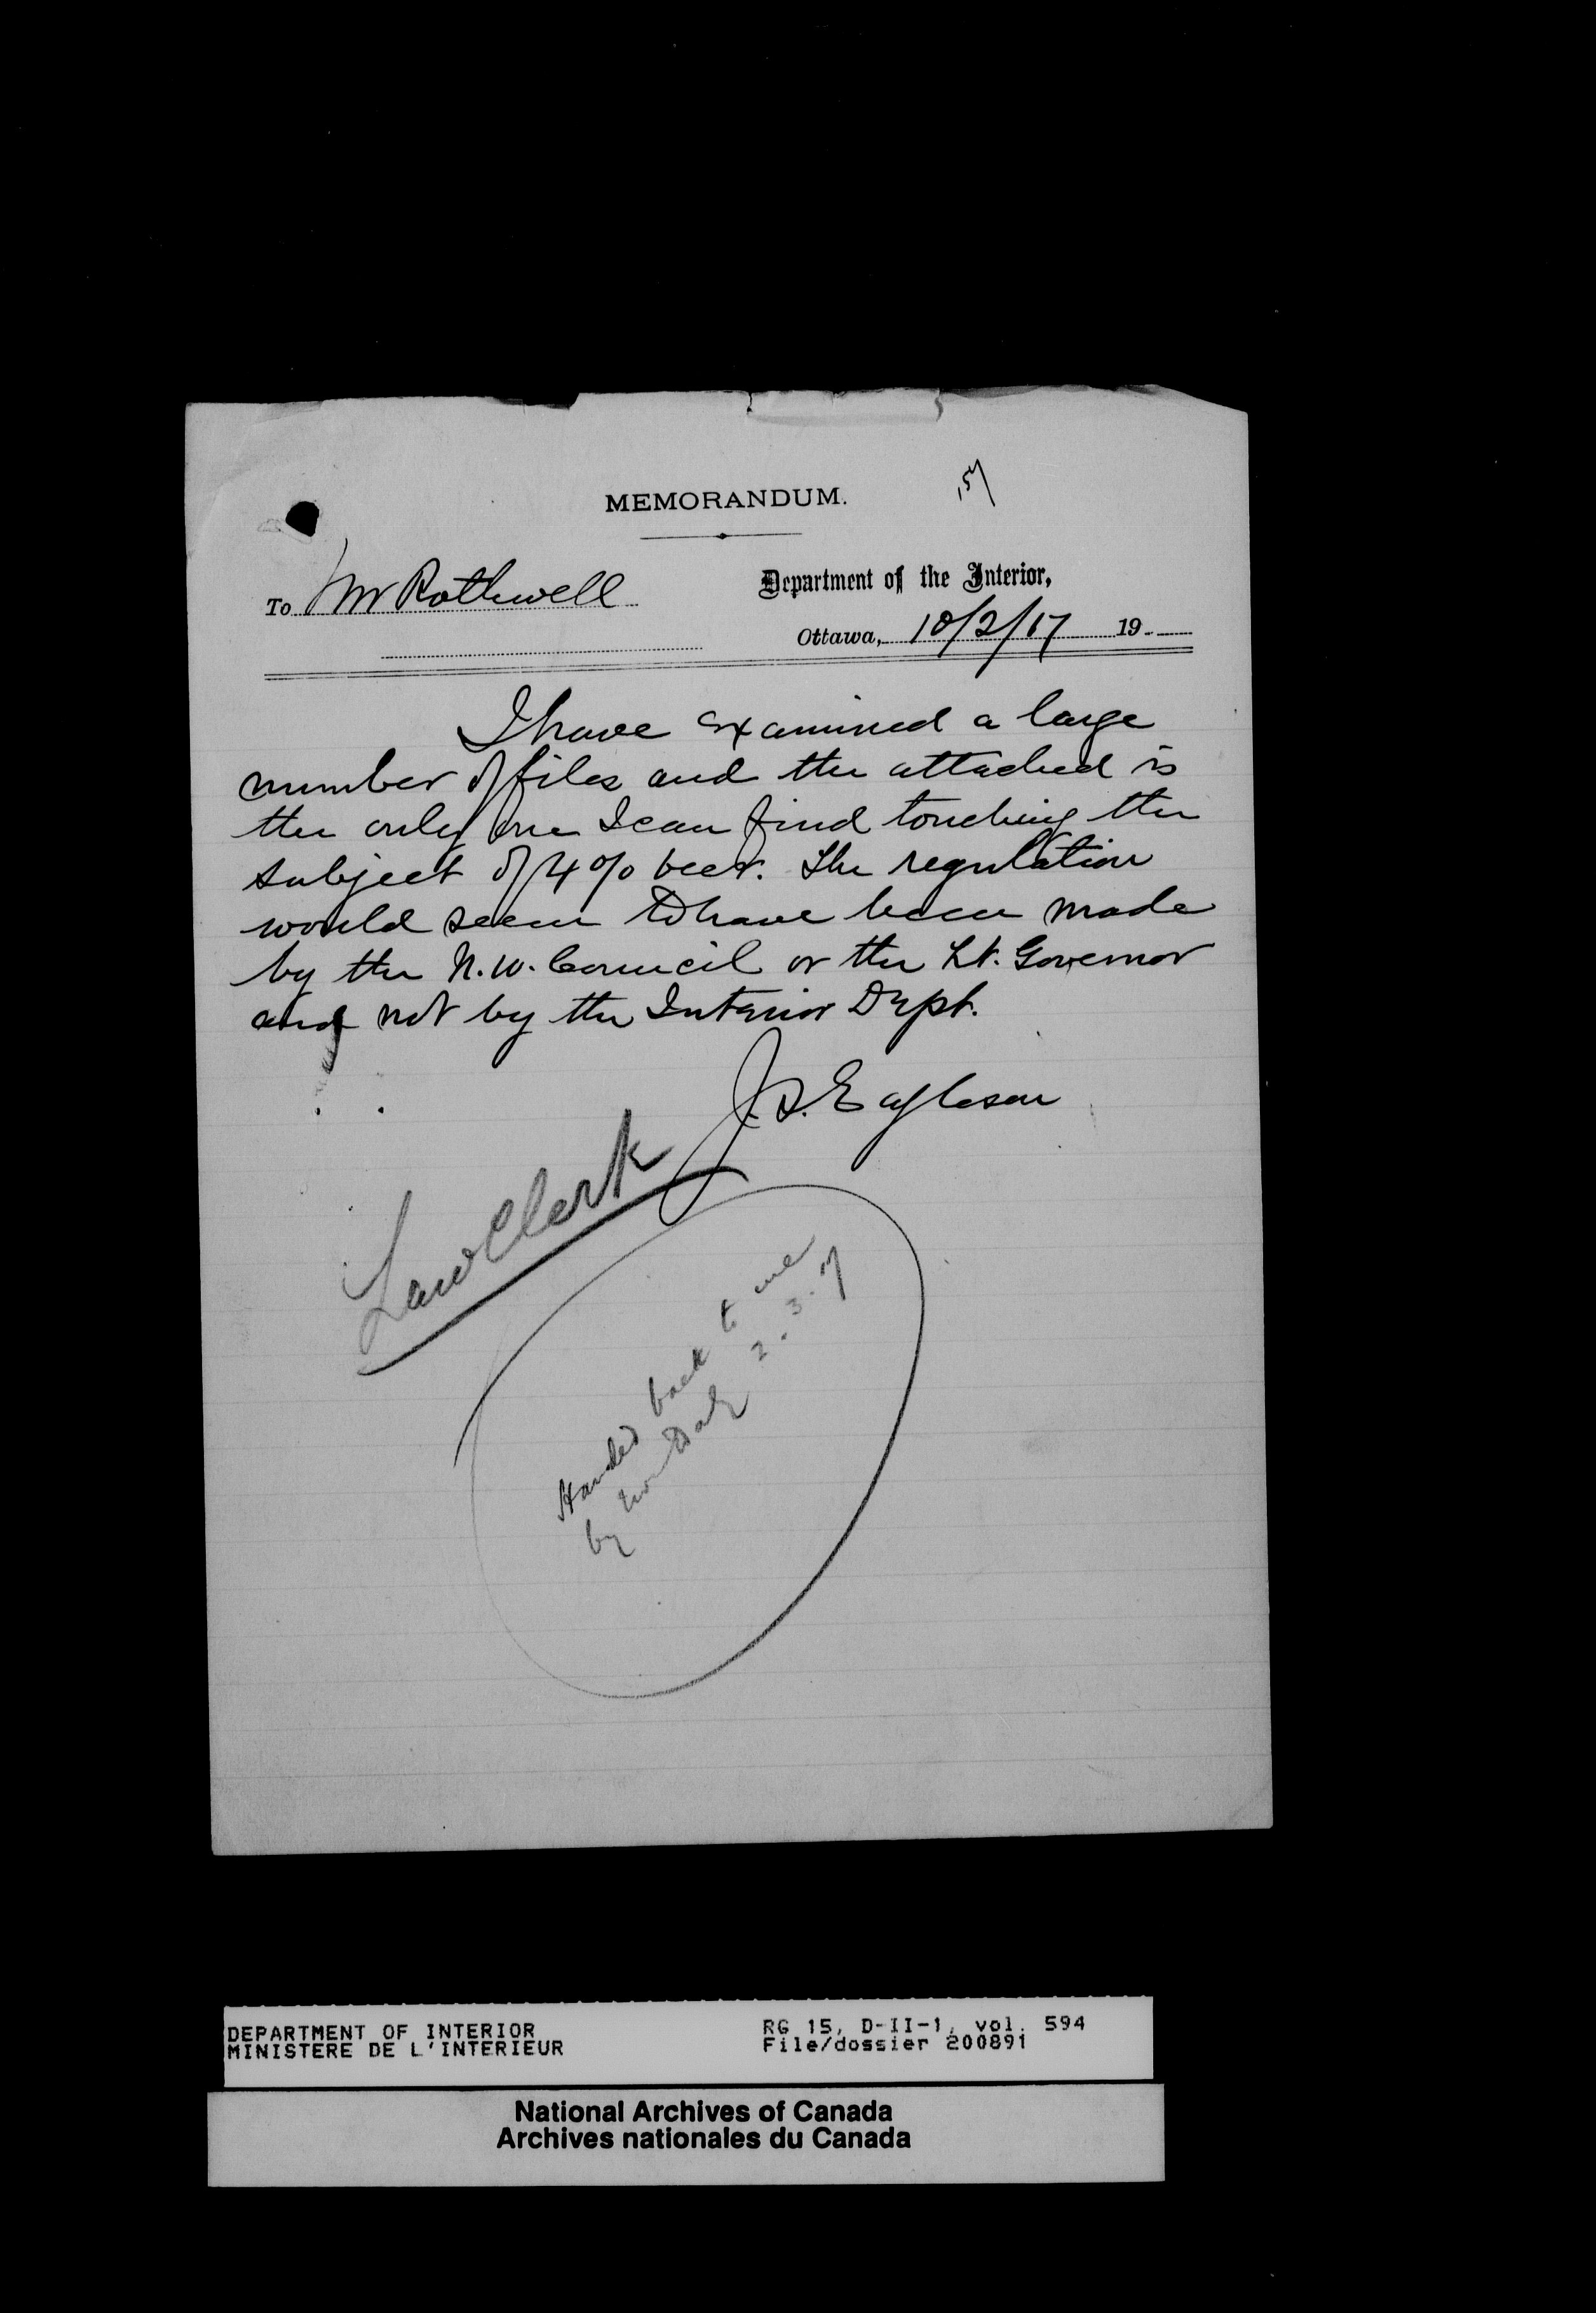 MEMORANDUM.
To Mr Rothwell
Department of the Interior,
Ottawa, 10/2/17 19
I have examined a large
number of files and the attached is
the only one I can find touching the
subject of 4% beer. The regulation
would seem to have been made
by the N.W. Council or the Lt. Governor
and not by the Interior Dept.
J.S. Eagleson
Law Clerk
Handed back to me
by Daly 2.3.17
DEPARTMENT OF INTERIOR
MINISTERE DE L'INTERIEUR
RG 15, D-II-1, vol. 594
File/dossier 200891
National Archives of Canada
Archives nationales du Canada